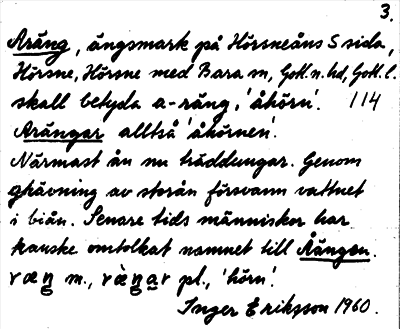 3.
Aräng, ängsmark på Hörsneåns S sida,
Hörsne, Hörsne med Bara sn, Gotl. n. hd, Gotl. l.
skall betyda a-räng, 'åhörn'. 114
Arängar alltså 'åhörnen'.
Närmast ån nu träddungar. Genom
grävning av storån försvann vattnet
i biån. Senare tids människor har
kanske omtolkat namnet till Ängen.
ræŋ m., ræ̀ŋar pl., 'hörn'.
Inger Eriksson 1960.